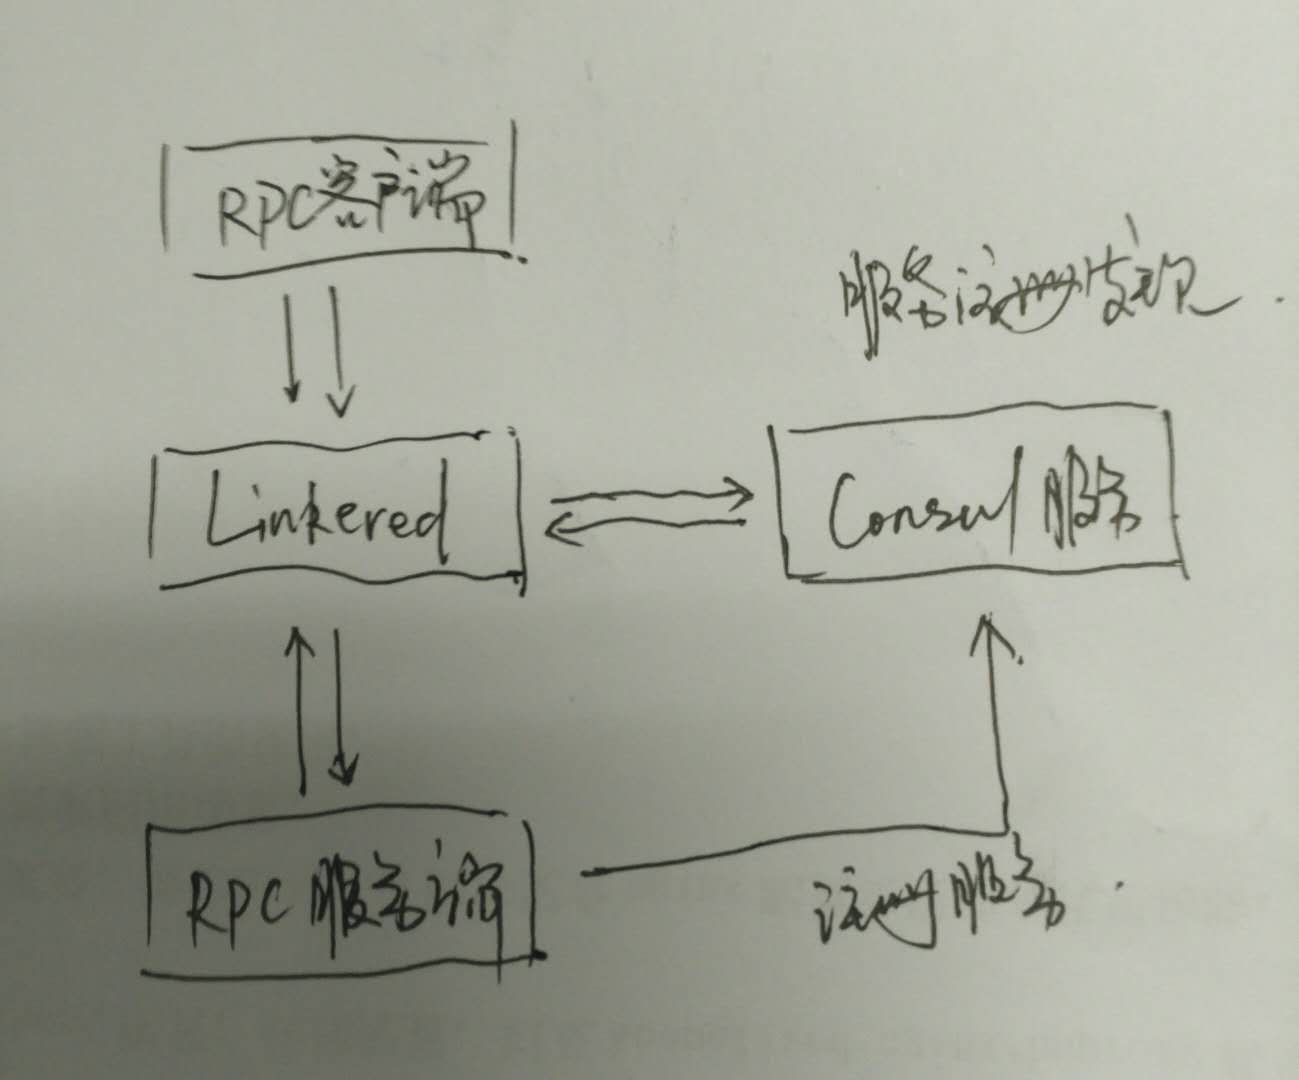 RPC客户端
服务注册发现
Linkered
Consul 服务
RPC 服务端
注册服务